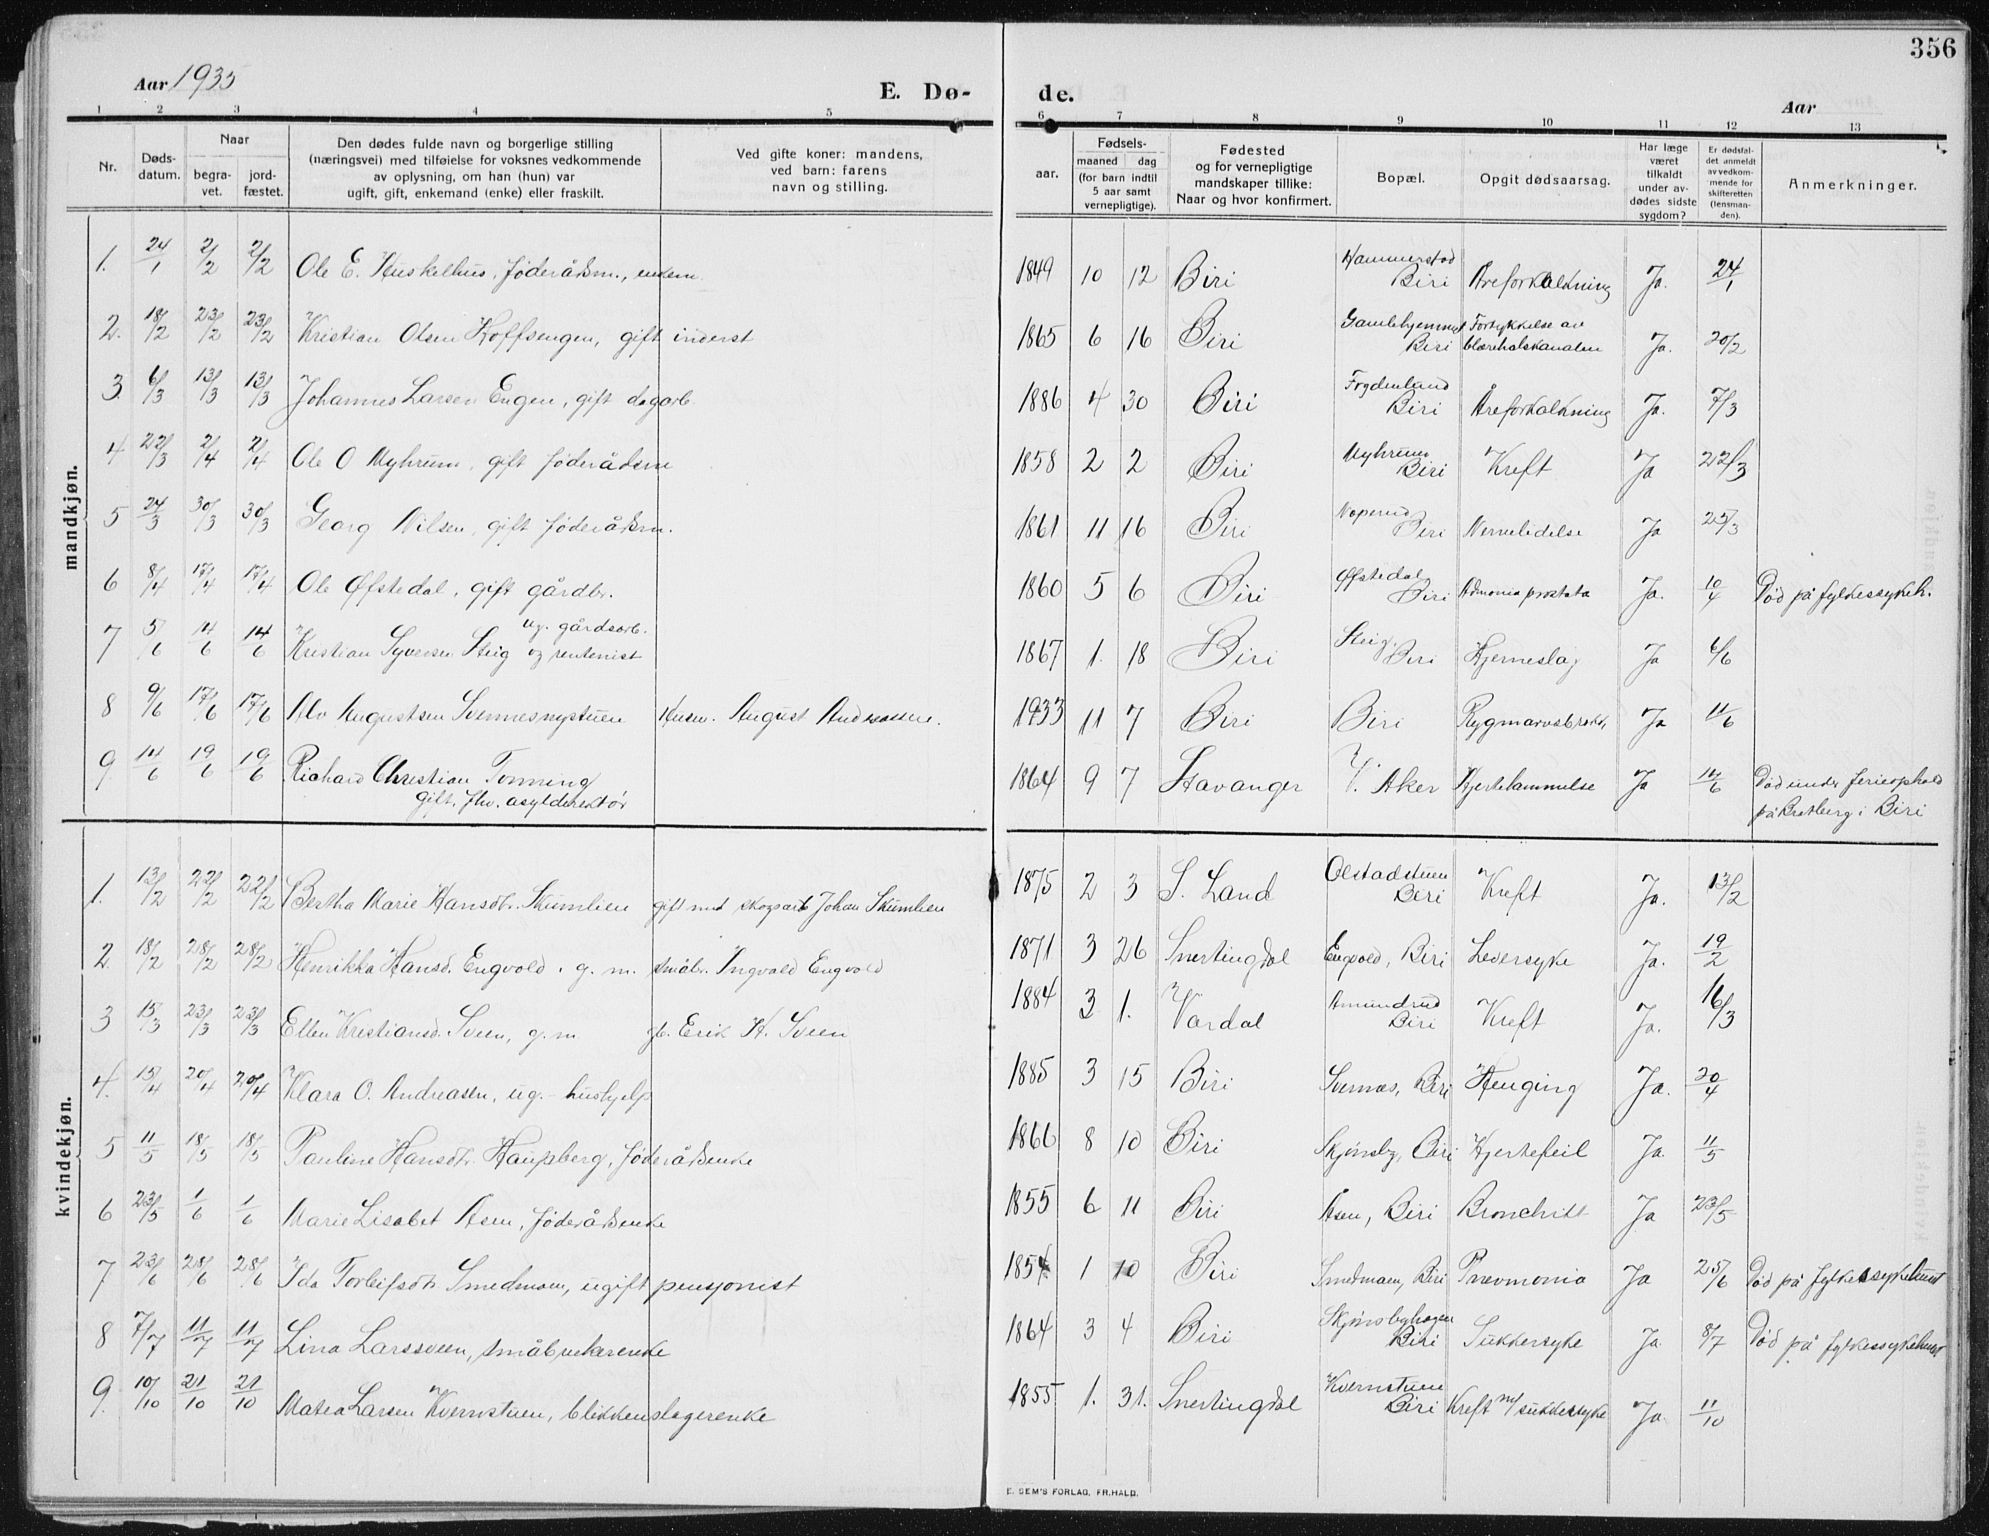 356
Aar 1935
E. Dø-
de.
Aar
1 2 3 4 5
6 7 8 9 10 11 12 13
Nr.
Døds-
datum.
Naar
begra-
vet.
jord-
fæstet.
Den dødes fulde navn og borgerlige stilling
(næringsvei) med tilføielse for voksnes vedkommende
av oplysning, om han (hun) var
ugift, gift, enkemand (enke) eller fraskilt.
Ved gifte koner: mandens,
ved barn: farens
navn og stilling.
Fødsels-
aar.
maaned dag
(for barn indtil
5 aar samt
vernepligtige).
Fødested
og for vernepligtige
mandskaper tillike:
Naar og hvor konfirmert.
Bopæl.
Opgit dødsaarsag.
Har læge
været
tilkaldt
under av-
dødes sidste
sygdom?
Er dødsfal-
det anmeldt
av vedkom-
mende for
skifteretten
(lensman-
den).
Anmerkninger.
mandkjøn.
1. 24/1 2/2 2/2 Ole E. Huskelhus, føderådsm., enkem. 1849 10 12 Biri Hammerstad Biri Åreforkalkning Ja. 24/1
2. 18/2 23/2 23/2 Kristian Olsen Hoffsengen, gift inderst 1865 6 16 Biri Gamlehjemmet Biri Fortykkelse av blærehalskanalen Ja. 20/2
3. 6/3 13/3 13/3 Johannes Larsen Engen, gift dagarb. 1886 4 30 Biri Frydenlund Biri Åreforkalkning Ja. 7/3
4 22/3 2/4 2/4 Ole O Myhrum, gift føderådsm 1858 2 2 Biri Myhrum Biri Kreft Ja 22/3
5 24/3 30/3 30/3 Georg Nilsen, gift føderådsm. 1861 11 16 Biri Biri Nervelidelse Ja 25/3
6 8/4 17/4 17/4 Ole Øfstedal, gift gårdbr. 1860 5 6 Biri Øfstedal Biri prostata Ja. 10/4 Død på fylkessykeh.
7 5/6 14/6 14/6 Kristian Syversen Steig ug. gårdsarb. og rentenist 1867 1. 18 Biri Steig, Biri Hjerneslag Ja 6/6
8 9/6 17/6 17/6 Alv Augustsen Svennesnystuen August Andreassen. 1933 11 7 Biri Biri Ja 11/6
9 14/6 19/6 19/6 Richard Christian Tonning gift. fhv. asyldirektør 1864 9 7 Stavanger V. Aker Hjertelammelse Ja 14/6 Død under ferieophold
på Bratberg i Biri
kvindekjøn.
1. 13/2 22/2 22/2 Bertha Marie Hansdtr. Skumlien gift med skogsarb Johan Skumlien 1875 2 3 S. Land Olstadstuen Biri Kreft Ja. 13/2
2. 18/2 28/2 28/2 Henrikka Hansd. Engvold. g. m. småbr. Ingvald Engvold 1871 3 26 Snertingdal Engvold, Biri Leversyke Ja. 19/2
3 15/3 23/3 23/3 Ellen Kristiansd. Sveen, g. m gb. Erik H. Sveen 1884 3 1. Vardal Amundrud Biri Kreft Ja. 16/3
4. 15/4 20/4 20/4 Klara O. Andreasen, ug.- hushjelp 1885 3 15 Biri Svennæs, Biri Henging Ja. 20/4
5 11/5 18/5 18/5 Pauline Hansdtr. Haugsberg, føderådsenke 1866 8 10 Biri Skjønsby, Biri Hjertefeil Ja. 11/5
6 23/5 1/6 1/6 Marie Lisabet Åsen, føderådsenke 1855 6 11 Biri Åsen, Biri Bronchitt Ja 23/5
7 23/6 28/6 28/6 Ida Torleifsdtr. Smedmoen, ugift pensjonist 1854 1 10 Biri Smedmoen, Biri Pnevmonia Ja 25/6 Død på fylkessykehuset
8 7/7 11/7 11/7 Lina Larssveen, småbrukerenke 1864 3 4 Biri Skjønsbyhagen Biri Sukkersyke Ja 8/7 Død på fylkessykehuset
9. 10/10 21/10 21/10 Matea Larsen Kvernstuen, blikkenslagerenke 1855 1. 31. Snertingdal Kvernstuen Biri Kreft m/sukkersyke Ja. 11/10
E. SEM'S FORLAG, FR.HALD.